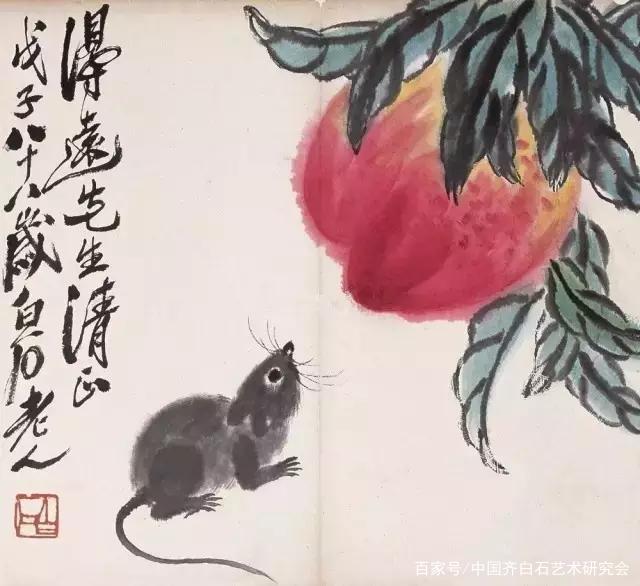 得遠先生清正
戊子八十八歲白石老人
百家号/中国齐白石艺术研究会